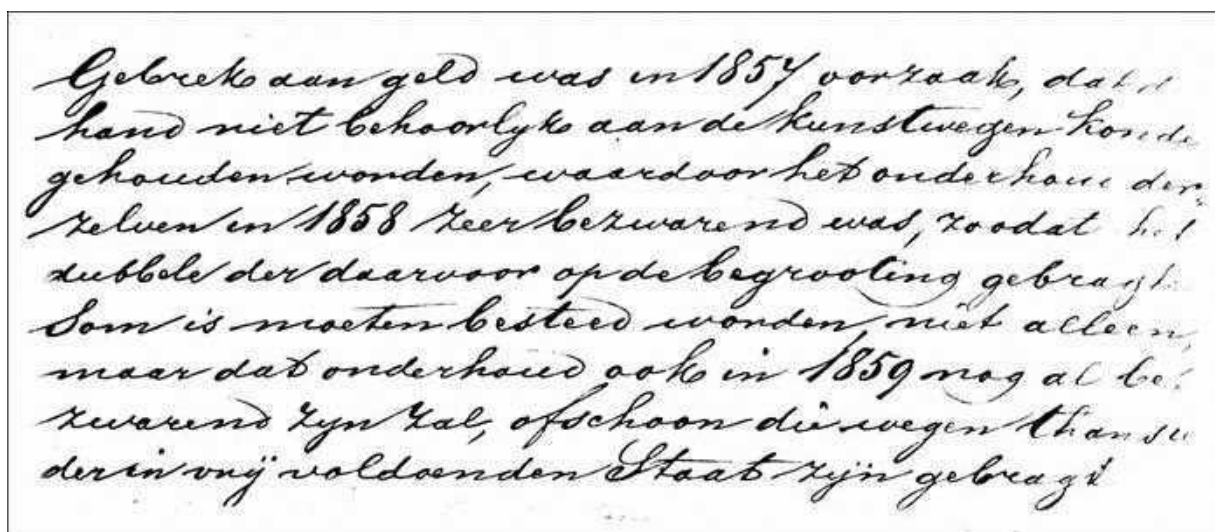 Gebrek aan geld was in 1857 oorzaak, dat de
hand niet behoorlyk aan de kunstwegen konde
gehouden worden, waardoor het onderhoud der-
zelven in 1858 zeer bezwarend was, zoodat het
dubbele der daarvoor op de begrooting gebragte
Som is moeten besteed worden, niet alleen,
maar dat onderhoud ook in 1859 nog al be-
zwarend zyn zal, ofschoon die wegen thans we
der in vrij voldoenden Staat zijn gebragt